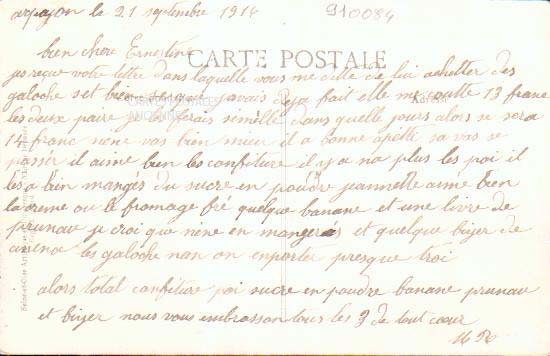 arpajon le 21 septembre 1914
910084
bien chere Ernestine
CARTE POSTALE
jes reçue votre lettre dans laquelle vous me dite de lui achetter des
galoche s et bien se que javais deja fait elle me coute 13 franc
les deux paire je les ferais semellé dans quelle jours alors se sera
14 franc nene vos bien mieu il a bonne apétit sa vas se
passer il aime bien les confiture il ya na plus les poi il
les a bien mangés du sucre en poudre jeannette aime bien
la creme ou le fromage fré quelque banane et une livre de
prunau je croi que néne en mangeras et quelque biger de
les galoche non on enporter presque troi
alors total confiture poi sucre en poudre banane prunau
et biger nous vous embrasson tous les 3 de tout cœur